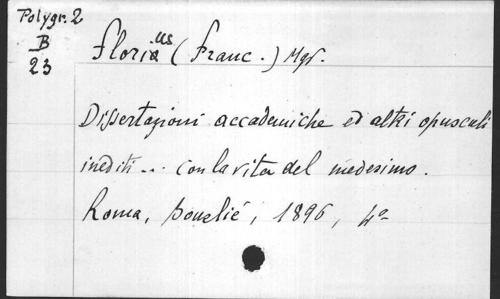 Polygr. 2
B
23
Florius (Franc.) Mgr.
Dissertazioni accademiche ed altri opuscoli
inediti... con la vita del medesimo.
Roma, 1896, 4º